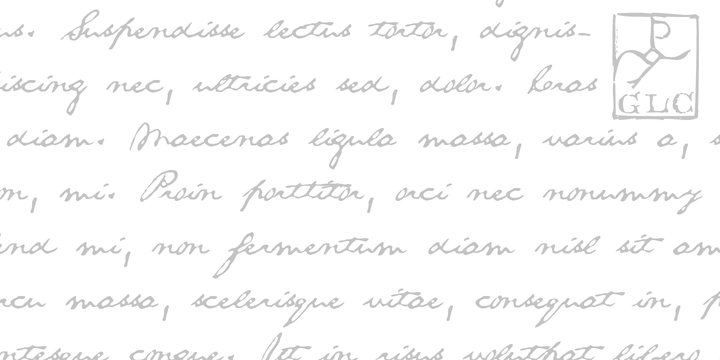 us. Suspendisse lectus tortor, dignis-
GLC
iscing nec, ultricies sed, dolor. Cras
diam. Maecenas ligula massa, varius a, s
on, mi. Proin porttitor, orci nec nonummy
end mi, non fermentum diam nisl sit am
rcu massa, scelerisque vitae, consequat in, p
ntesque congue. Ut in risus volutpat libero